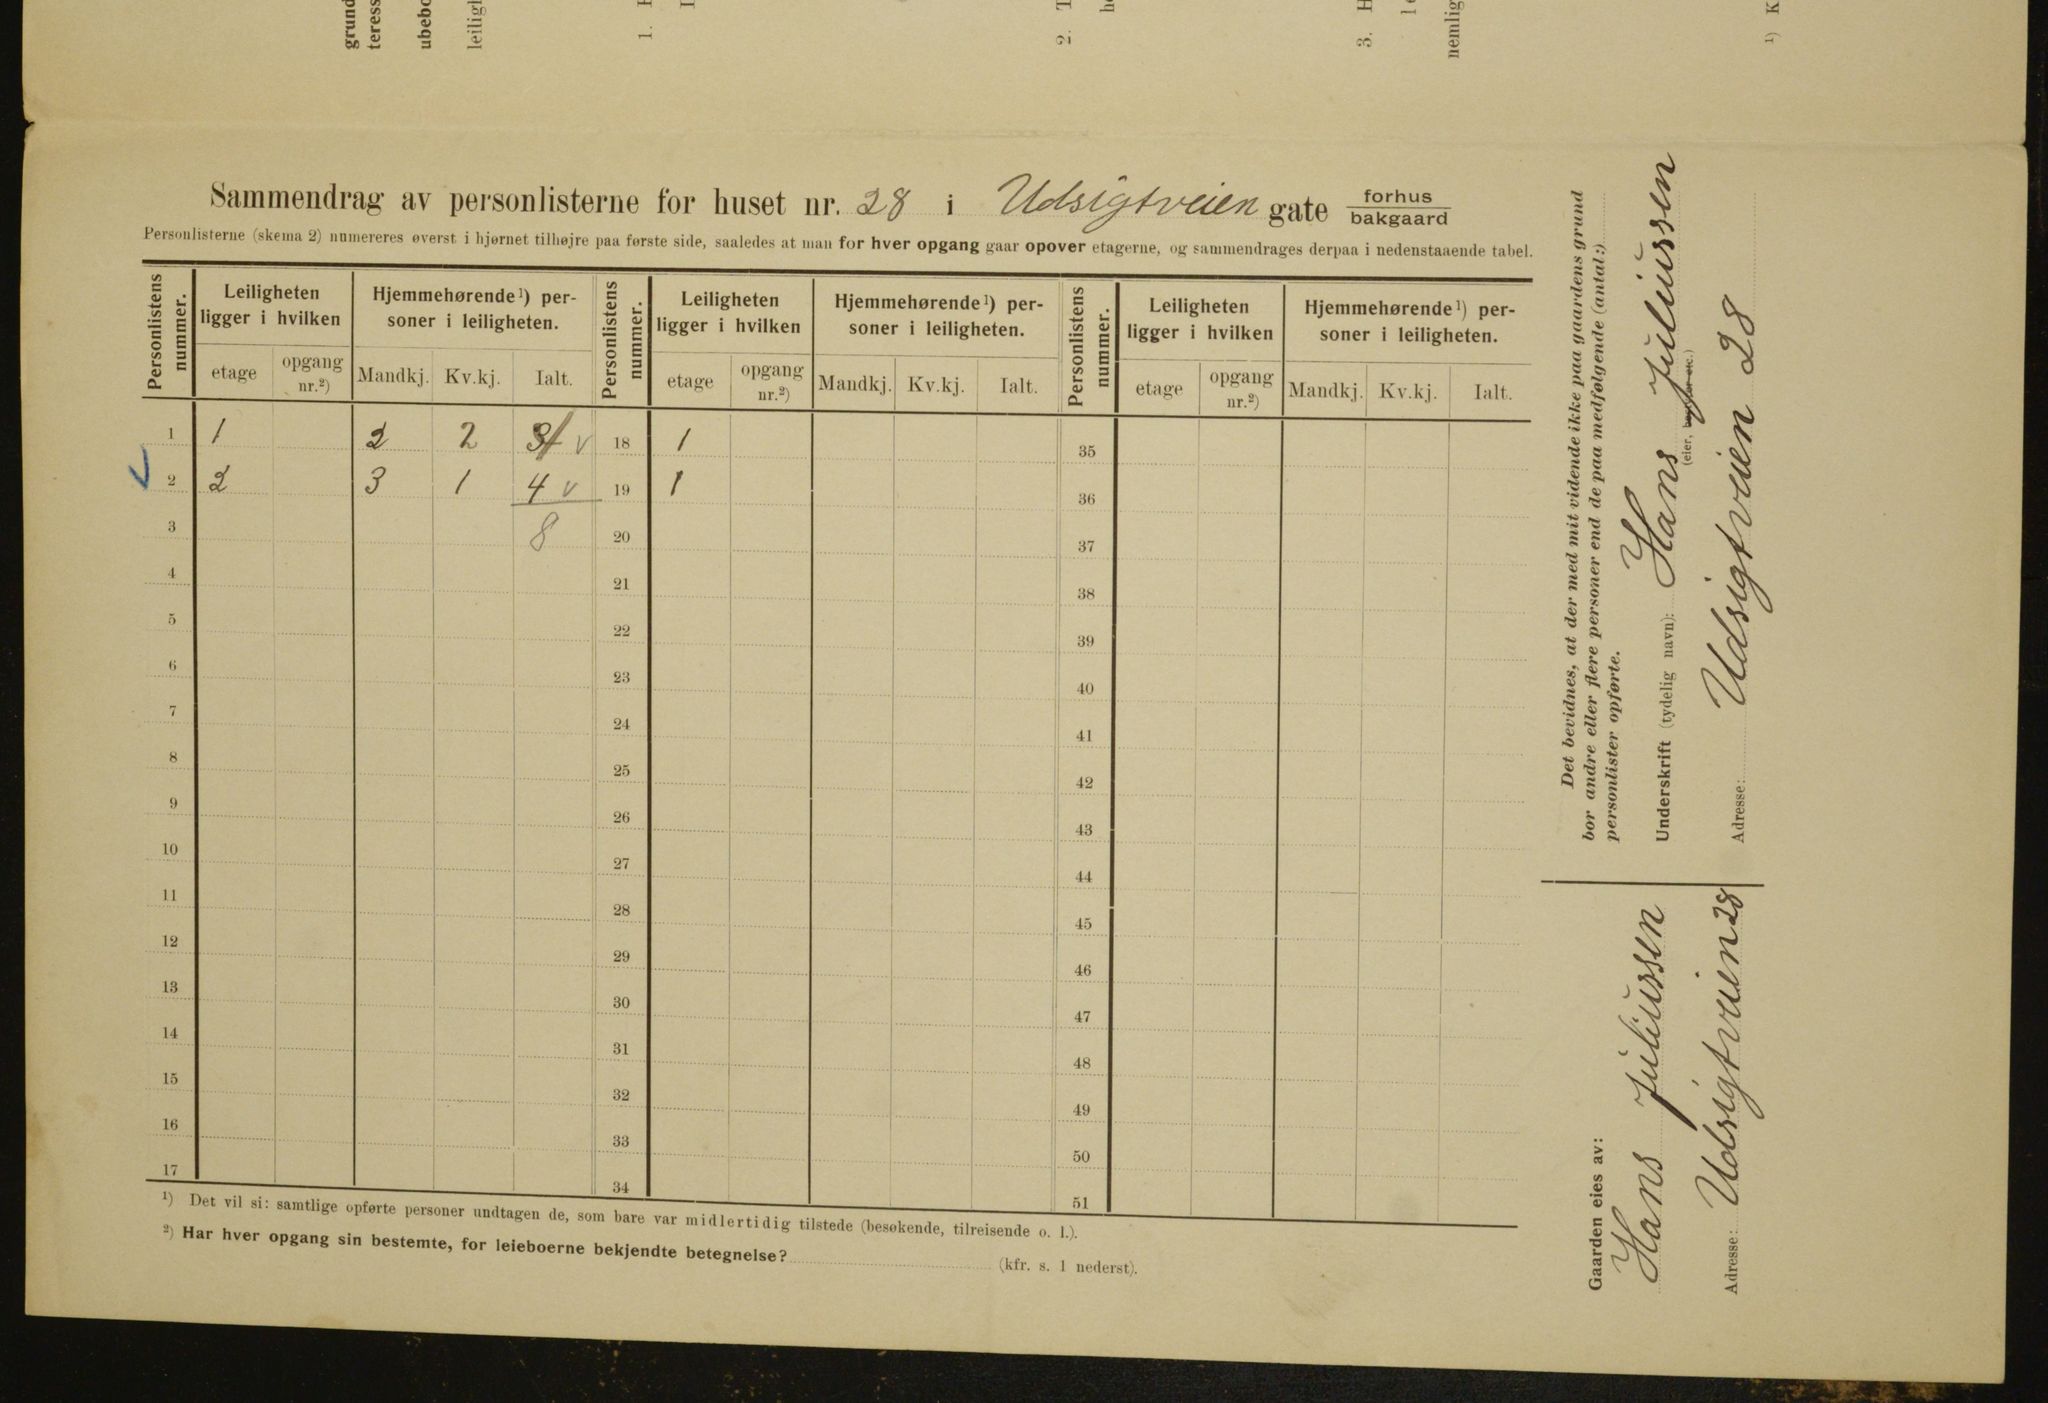 grund
teress
ubebo
leiligh
1.
2. T
3. H
nemlig
¹) K
Sammendrag av personlisterne for huset nr. 28 i Udsigtveien gate forhus
bakgaard
Personlisterne (skema 2) numereres øverst i hjørnet tilhøjre paa første side, saaledes at man for hver opgang gaar opover etagerne, og sammendrages derpaa i nedenstaaende tabel.
Personlistens nummer. Leiligheten ligger i hvilken Hjemmehørende¹) personer i leiligheten. Personlistens nummer. Leiligheten ligger i hvilken Hjemmehørende¹) personer i leiligheten. Personlistens nummer. Leiligheten ligger i hvilken Hjemmehørende¹) personer i leiligheten.
etage opgang nr.²) Mandkj. Kv.kj. Ialt. etage opgang nr.²) Mandkj. Kv.kj. Ialt. etage opgang nr.²) Mandkj. Kv.kj. Ialt.
1 1 2 2 4 v 18 1 35
2 2 3 1 4 v 19 1 36
3 8 20 37
4 21 38
5 22 39
6 23 40
7 24 41
8 25 42
9 26 43
10 27 44
11 28 45
12 29 46
13 30 47
14 31 48
15 32 49
16 33 50
17 34 51
¹) Det vil si: samtlige opførte personer undtagen de, som bare var midlertidig tilstede (besøkende, tilreisende o. l.).
²) Har hver opgang sin bestemte, for leieboerne bekjendte betegnelse? (kfr. s. 1 nederst).
Det bevidnes, at der med mit vidende ikke paa gaardens grund
bor andre eller flere personer end de paa medfølgende (antal:)
personlister opførte.
Underskrift (tydelig navn): Hans Juliussen
(eier, bestyrer etc.)
Adresse: Udsigtveien 28
Gaarden eies av:
Hans Juliussen
Adresse: Udsigtveien 28